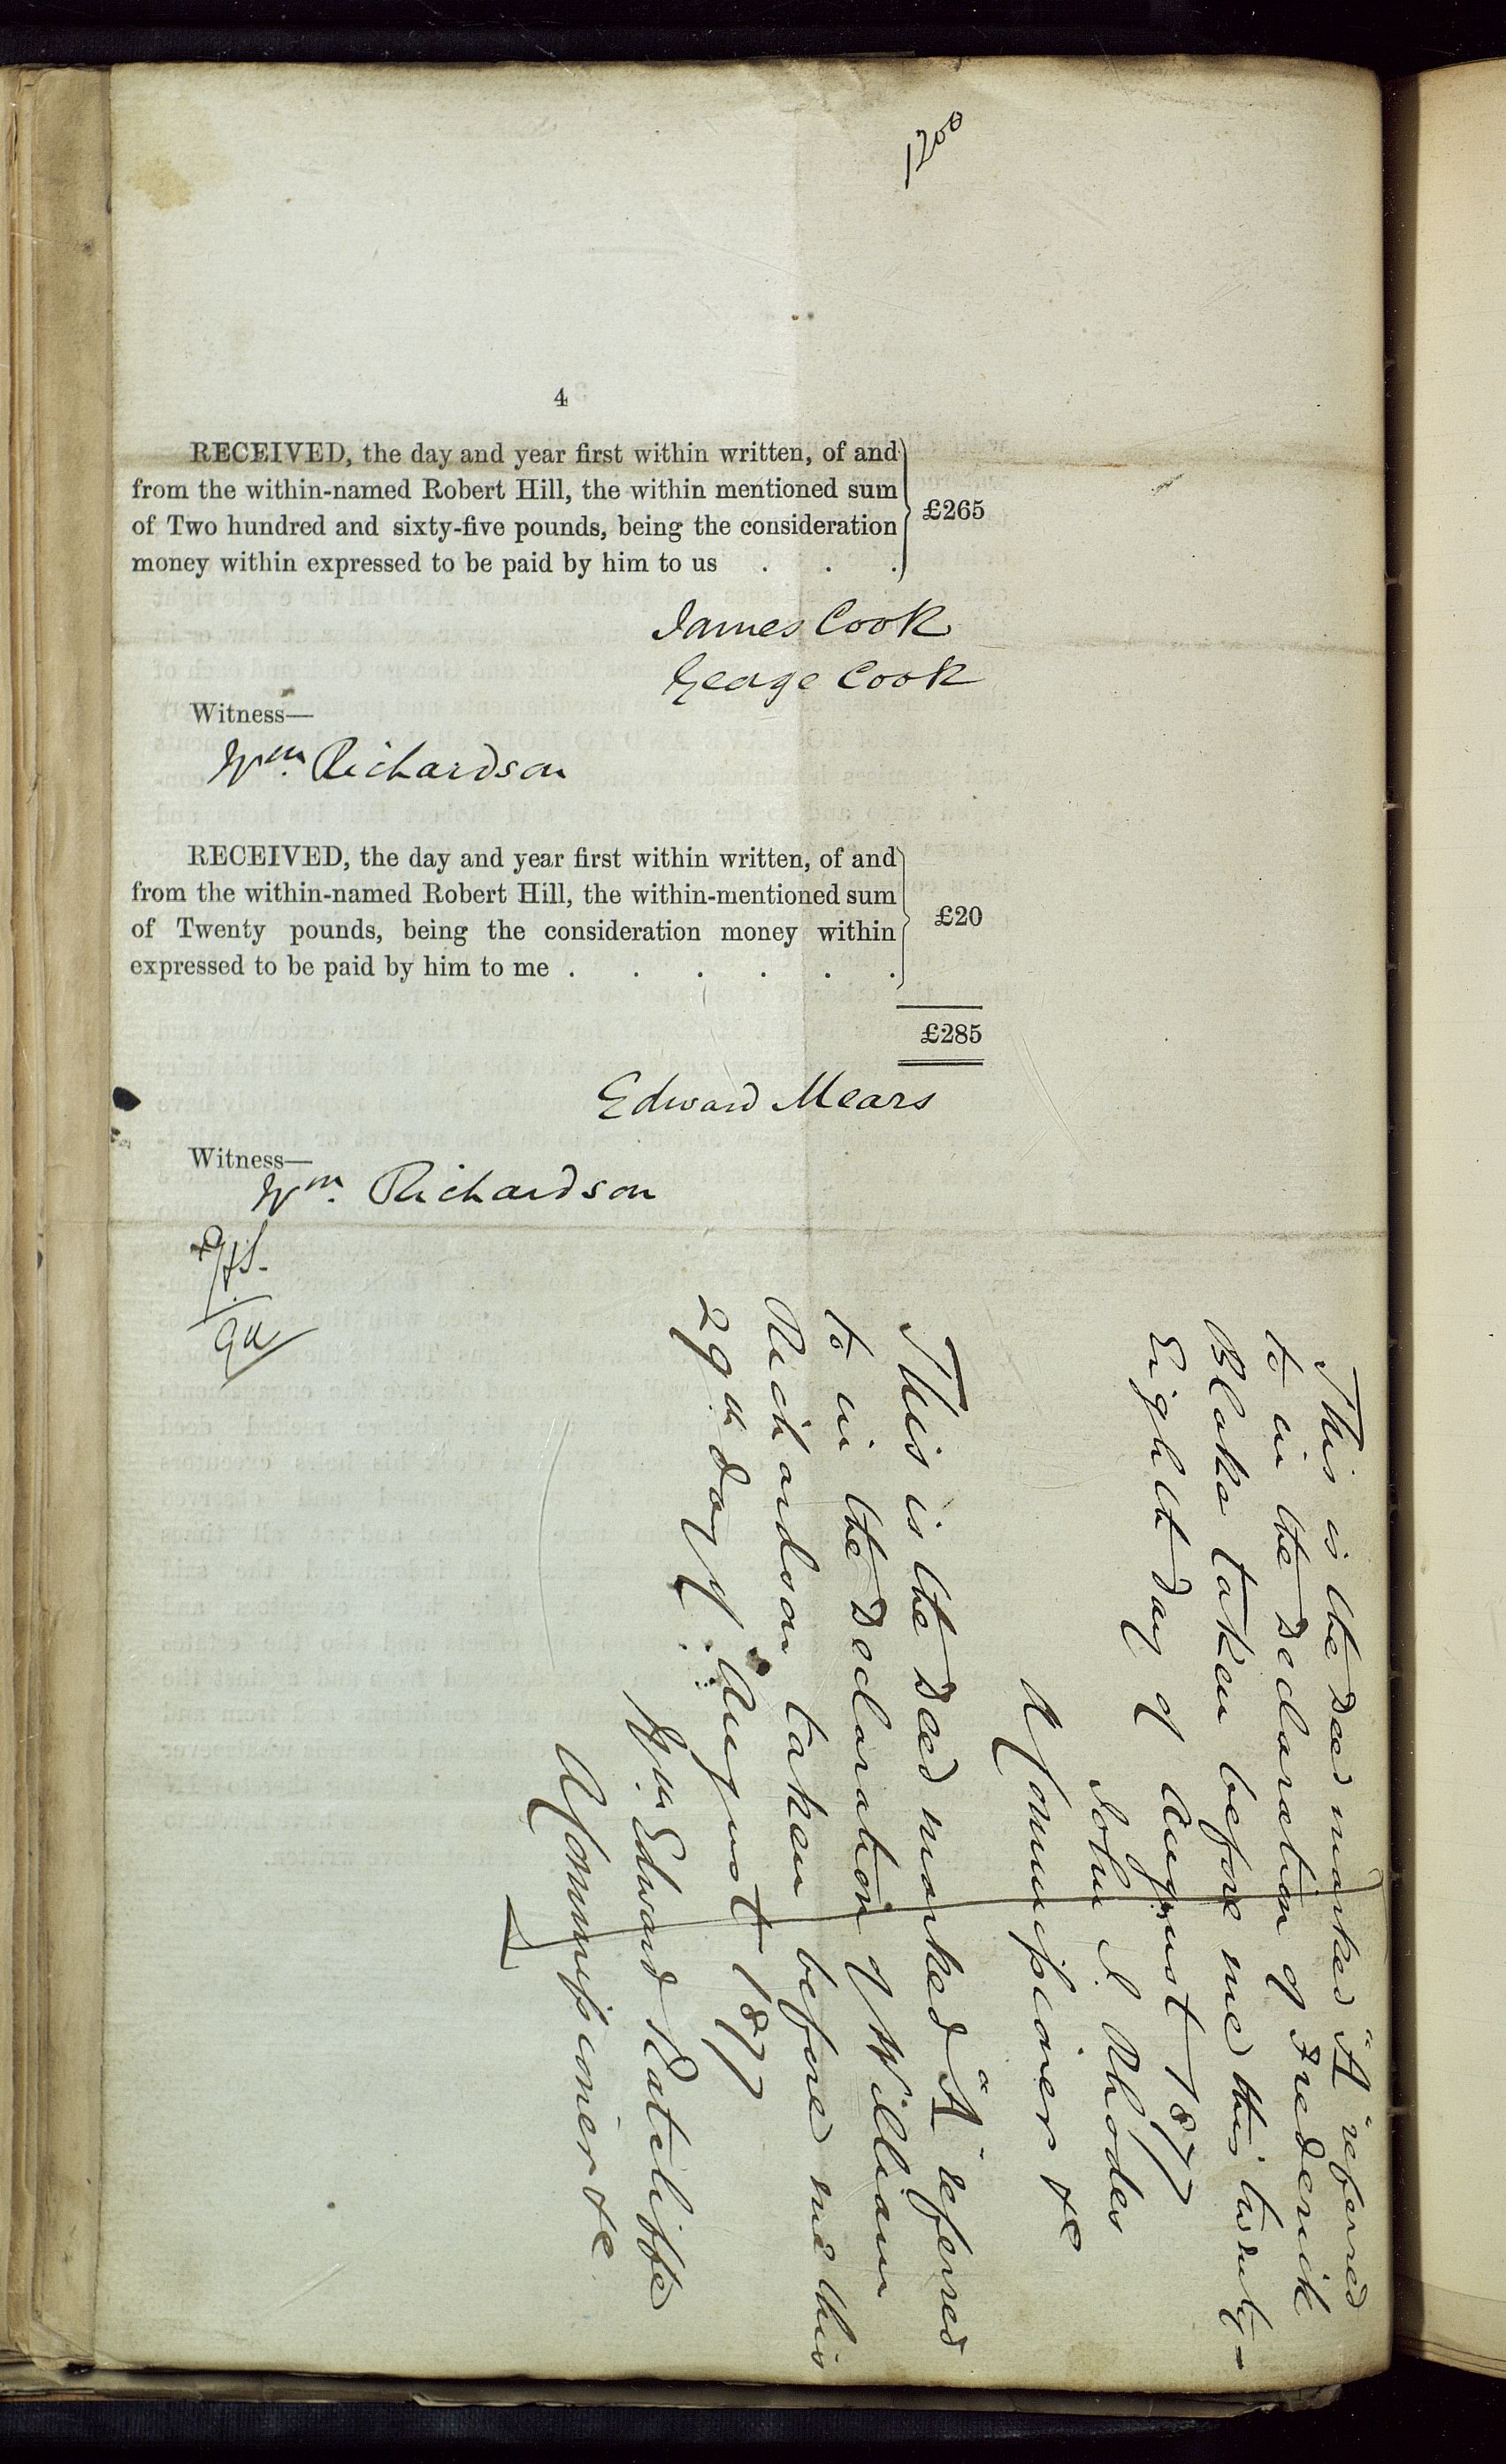 1200
4
RECEIVED, the day and year first within written, of and
from the within-named Robert Hill, the within mentioned sum
of Two hundred and sixty-five pounds, being the consideration
money within expressed to be paid by him to us . . .
£265
James Cook
George Cook
Witness—
Wm. Richardson
RECEIVED, the day and year first within written, of and
from the within-named Robert Hill, the within-mentioned sum
of Twenty pounds, being the consideration money within
expressed to be paid by him to me . . . . . .
£20
£285
Edward Mears
Witness—
Wm. Richardson
This is the Deed marked "A" referred
to in the Declaration of Frederick
Blake taken before me this twenty-
Eighth day of August 1877
John I. Rhodes
A Commissioner &c
This is the Deed marked "A" referred
to in the Declaration of William
Richardson taken before me this
29th day of August 1877
Wm Edward Ratcliffe
A Commissioner &c.